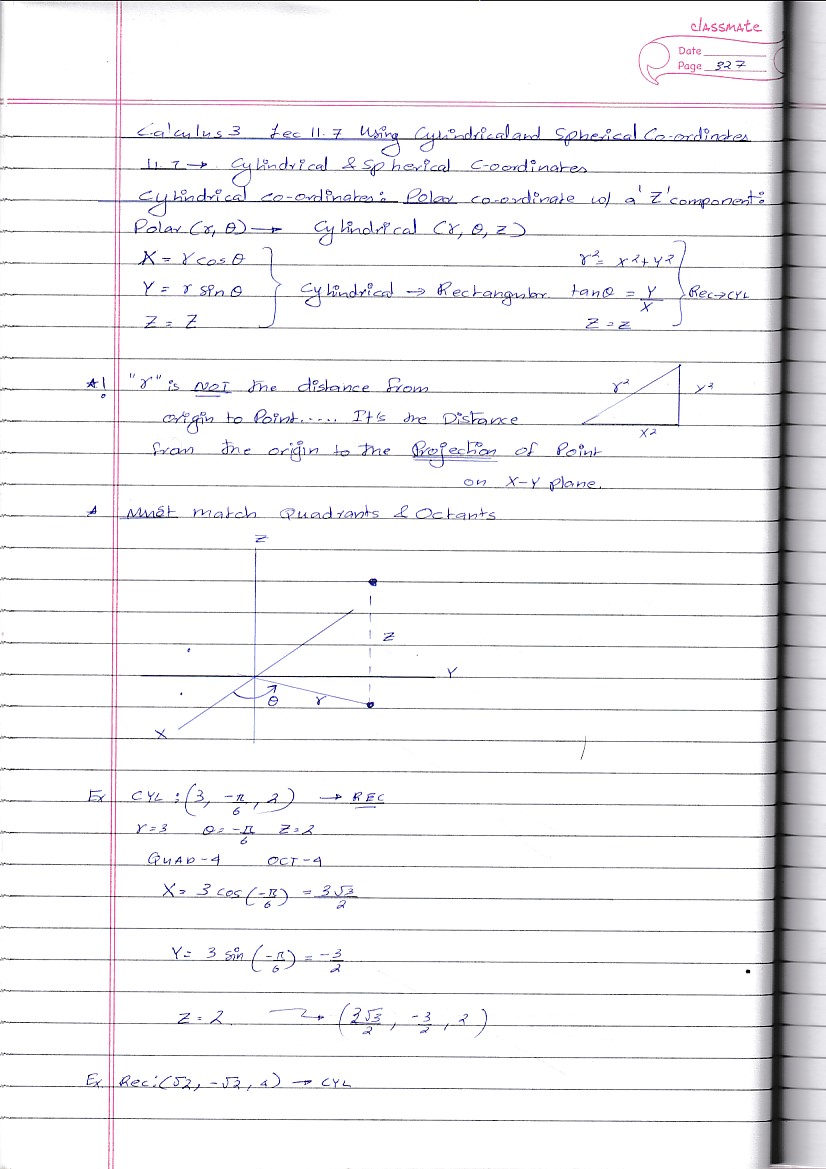 classmate
Date
Page 327
Calculus 3 Lec 11.7 Using Cylindrical and Spherical Co-ordinates
11.7 → Cylindrical & Spherical Coordinates
Cylindrical co-ordinates: Polar co-ordinate w/ a 'Z' component:
Polar (r, θ) → Cylindrical (r, θ, z)
X = r cos θ r² = x²+y²
Y = r sin θ } Cylindrical → Rectangular. tanθ = Y/X } Rec→CYL
Z = Z Z = z
*! "r" is NOT the distance from r² y²
origin to Point..... It's the Distance x²
from the origin to the Projection of Point
on X-Y plane.
* Must match Quadrants & Octants
Z
Z
Y
θ r
X
Ex CYL : (3, -π/6, 2) → REC
r=3 θ=-π/6 Z=2
QUAD-4 OCT-4
X= 3 cos (-π/6) = 3√3/2
Y= 3 sin (-π/6) = -3/2
Z=2. → (3√3/2, -3/2, 2)
Ex Rec: (√2, -√2, 4) → CYL